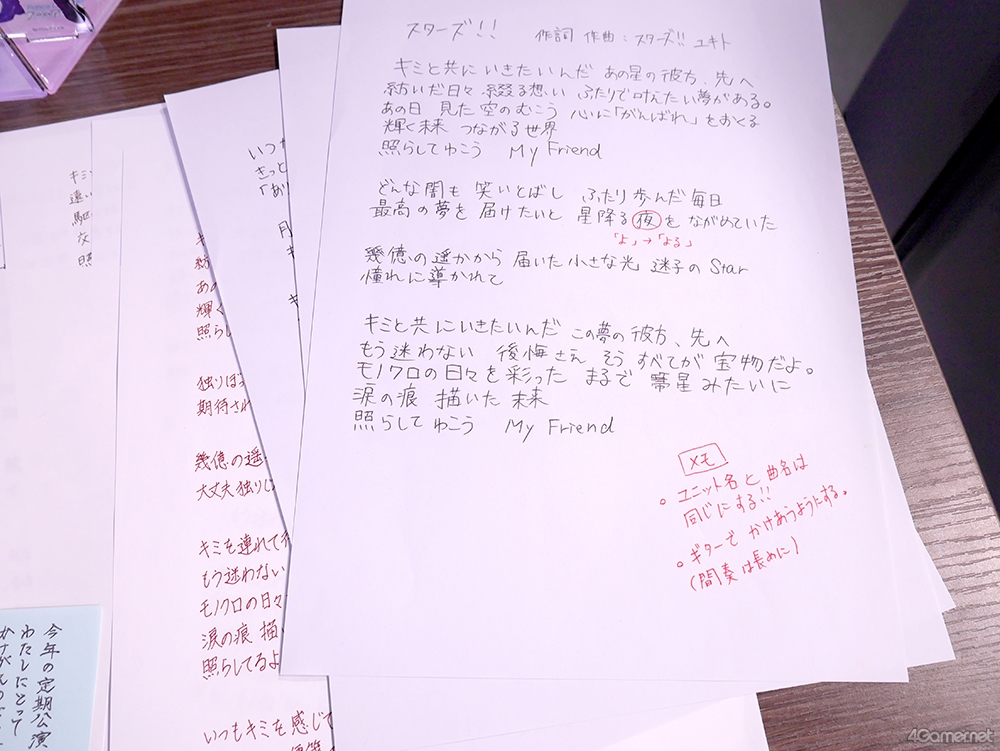 スターズ!! 作詞 作曲:スターズ!! ユキト
キミと共にいきたいんだ あの星の彼方、先へ
紡いだ日々 綴る想い ふたりで叶えたい夢がある。
あの日 見た空のむこう 心に「がんばれ」をおくる
輝く未来 つながる世界
照らしてゆこう My Friend
どんな闇も 笑いとばし ふたり歩んだ毎日
最高の夢を 届けたいと 星降る夜を ながめていた
「よ」→「よる」
幾億の遥かから 届いた小さな光 迷子のStar
憧れに導かれて
キミと共にいきたいんだ この夢の彼方、先へ
もう迷わない 後悔さえ そう すべてが 宝物だよ。
モノクロの日々を彩った まるで 箒星みたいに
涙の痕 描いた未来
照らしてゆこう My Friend
メモ
・ユニット名と曲名は
同じにする!!
・ギターで かけあうようにする。
(間奏は長めに)
いつ
きっと
「あり
月
キミ
遠い
馳
交
照
紡
あの
輝く
照らし
独りぼっ
期待され
幾億の遥
大丈夫 独りじ
キミを連れて行
もう迷わない
モノクロの日々
涙の痕 描い
照らしてるよ
いつもキミを感じて
今年の定期公演
わたしにとって
かけがえのな
4Gamer.net